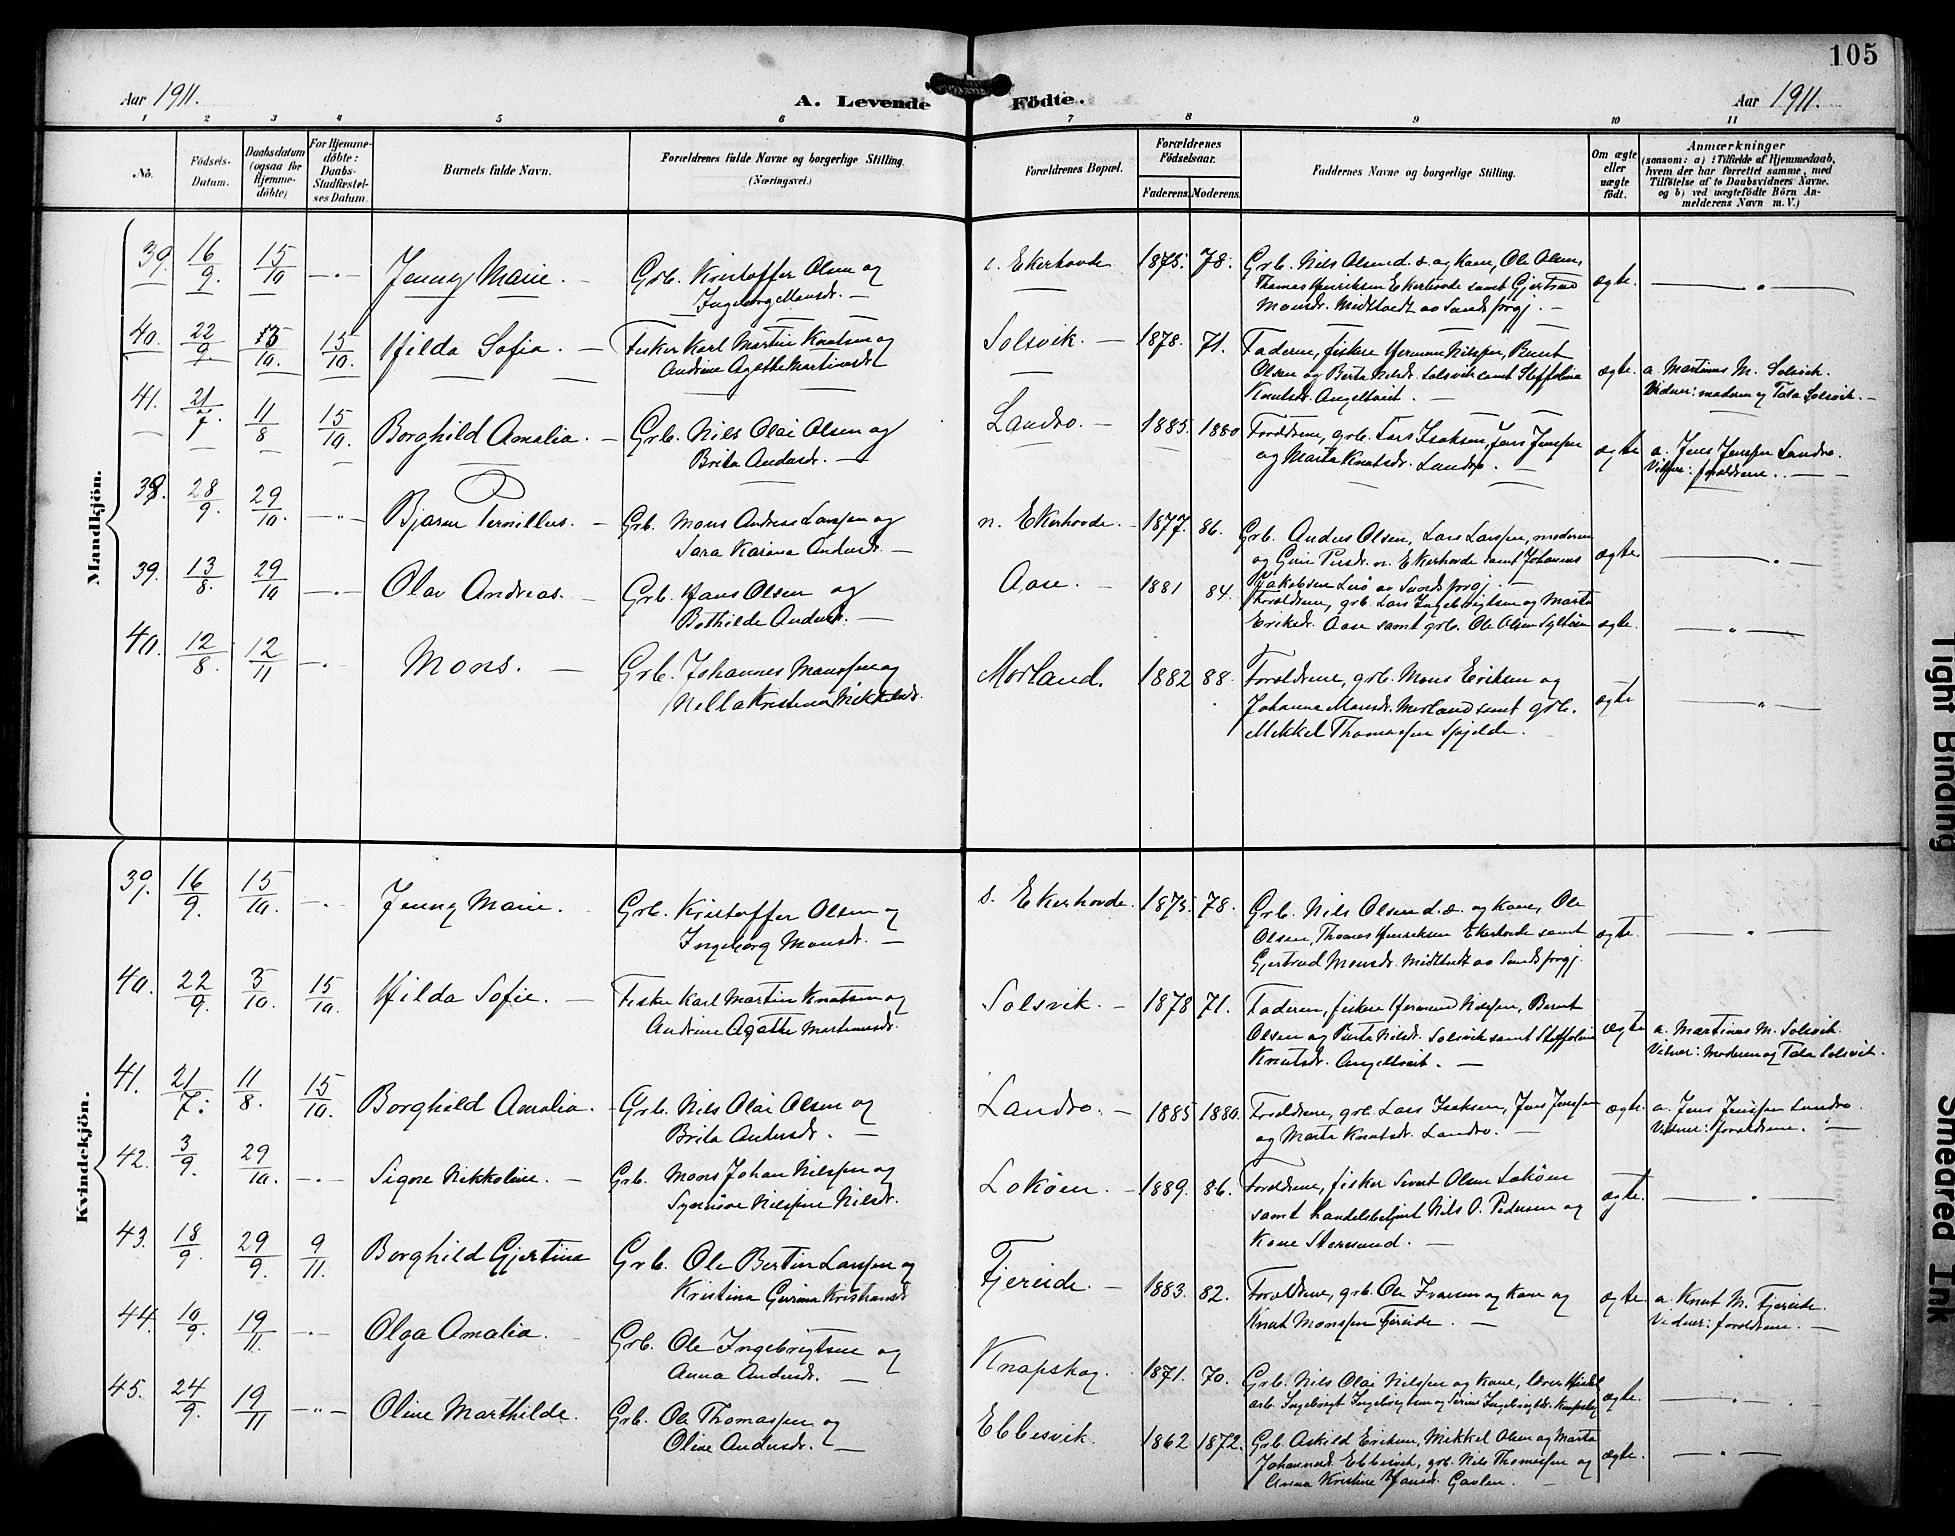 105
Aar 1911.
A. Levende Födte.
Aar 1911.
1 2 3 4 5 6 7 8 9 10 11
No.
Födsels-Datum.
Daabsdatum (ogsaa for Hjemme-döbte)
For Hjemme-döbte: Daabs-Stadfæstel-ses Datum.
Barnets fulde Navn.
Forældrenes fulde Navne og borgerlige Stilling.
(Næringsvei.)
Forældrenes Bopæl.
Forældrenes Födselsaar.
Faderens. Moderens.
Faddernes Navne og borgerlige Stilling.
Om ægte eller uægte födt.
Anmærkninger
(saasom: a) i Tilfælde af Hjemmedaab,
hvem der har forrettet samme, med
Tilföielse af to Daabsvidners Navne.
og b) ved uægtefödte Börn An-
melderens Navn m. V.)
Mandkjön.
39. 16/9. 15/10 -"- Jenny Marie. — Grb. Kristoffer Olsen og
Ingeborg Monsdr. —
s. Ekerhovde 1875. 78. Grb. Nils Olsen d.æ. og Kone, Ole Olsen,
Thomas Henriksen Ekerhovde samt Gjertrud
Monsdr. Midttvedt av Sunds prgj. —
ægte. — " —
40. 22/9. 15/10. Hilda Sofia. — Fisker Karl Martin Knutsen og
Andrine Agathe Martinusdr
Solsvik. — 1878. 71. Faderen, fiskere Herman Nilssen, Bernt
Olsen og Berta Nilsdr. Solsvik samt Steffolina
Knutsdr. Angeltveit. —
ægte. a. Martinus M. Solsvik.
Vidner: moderen og Tala Solsvik. —
41. 21/7. 11/8 15/10. Borghild Amalia. — Grb. Nils Olai Olsen og
Brita Andersdr. —
Landro. — 1885. 1880 Forældrene, grb. Lars Isaksen, Jens Jenssen
og Marta Knutsdr. Landro. —
ægte a. Jens Jenssen Landro.
Vidner: forældrene. —
38. 28/9. 29/10. -"- Bjarne Pernillus. — Grb. Mons Andreas Larssen og
Sara Karina Andersdr. —
n. Ekerhovde. 1877. 86. Grb. Anders Olsen, Lars Larssen, moderen
og Guri Persdr. n. Ekerhovde samt Johannes
Jakobsen Lerö av Sunds prgj. —
ægte. — " —
39. 13/8. 29/10 -"- Olav Andreas. — Grb. Hans Olsen og
Bothilde Andersdr. —
Aase. — 1881 84. Forældrene, grb. Lars Ingebrigtsen og Marta
Eriksdr. Aase samt grb. Ole Olsen Syltöen
ægte. — " —
40. 12/8. 12/11 -"- Mons. — Grb. Johannes Monssen og
Nella Kristina Mikkelsdr.
Morland. 1882 88. Forældrene, grb. Mons Eriksen og
Johanna Monsdr. Morland samt grb.
Mikkel Thomassen Spjelde.
ægte — " —
Kvindekjön.
39. 16/9. 15/10. -"- Jenny Marie. Grb. Kristoffer Olsen og
Ingeborg Monsdr. —
s. Ekerhovde. 1875. 78. Grb. Nils Olsen d.æ. og Kone, Ole
Olsen, Thomas Henriksen Ekerhovde samt
Gjertrud Monsdr. Midttvedt av Sunds prgj.
ægte. — " —
40. 22/9. 3/10. 15/10. Hilda Sofie. — Fisker Karl Martin Knutsen og
Andrine Agathe Martinusdr.
Solsvik. — 1878 71. Faderen, fiskere Herman Nilssen, Bernt
Olsen og Berta Nilsdr. Solsvik samt Steffolina
Knutsdr. Angeltveit. —
ægte a. Martinus M. Solsvik.
Vidner: Moderen og Tala Solsvik.
41. 21/7. 11/8. 15/10. Borghild Amalia. Grb. Nils Olai Olsen og
Brita Andersdr. —
Landro. — 1885 1880. Forældrene, grb. Lars Isaksen, Jens Jenssen
og Marta Knutsdr. Landro. —
ægte. a. Jens Jenssen Landro.
Vidner: forældrene. —
42. 3/9. 29/10. -"- Signe Nikkoline. — Grb. Mons Johan Nilssen og
Synnöve Nilssine Nilsdr.
Loköen. — 1889. 86. Forældrene, fisker Sivert Olsen Loköen
samt handelsbetjent Nils O. Pedersen og
Kone Storesund. —
ægte. — " —
43. 18/9. 29/9. 9/11. Borghild Gjertina Grb. Ole Bertin Larssen og
Kristina Gurina Kristiansdr
Fjereide. — 1883. 82. Forældrene, grb. Ole Iversen og Kone og
Knut Monssen Fjereide. —
ægte. a. Knut M. Fjereide.
Vidner: forældrene. —
44. 10/9. 19/11. -"- Olga Amalia. Grb. Ole Ingebrigtsen og
Anna Andersdr. —
Knapskog. 1871. 70. Grb. Nils Olai Nilssen og Kone,
arb. Ingebrigt Ingebrigtsen og Serine Ingebrigtsdr. Knapskog
ægte. — " —
45. 24/9. 19/11 -"- Oline Marthilde. Grb. Ole Thomassen og
Oline Andersdr. —
Ebbesvik. 1862 1872. Grb. Askild Eriksen, Mikkel Olsen og Marta
Johannesdr. Ebbesvik, grb. Nils Thomassen og
Anna Kristine Hansdr. Gavlen.
ægte. — " —
Tight Binding
Smeared Ink